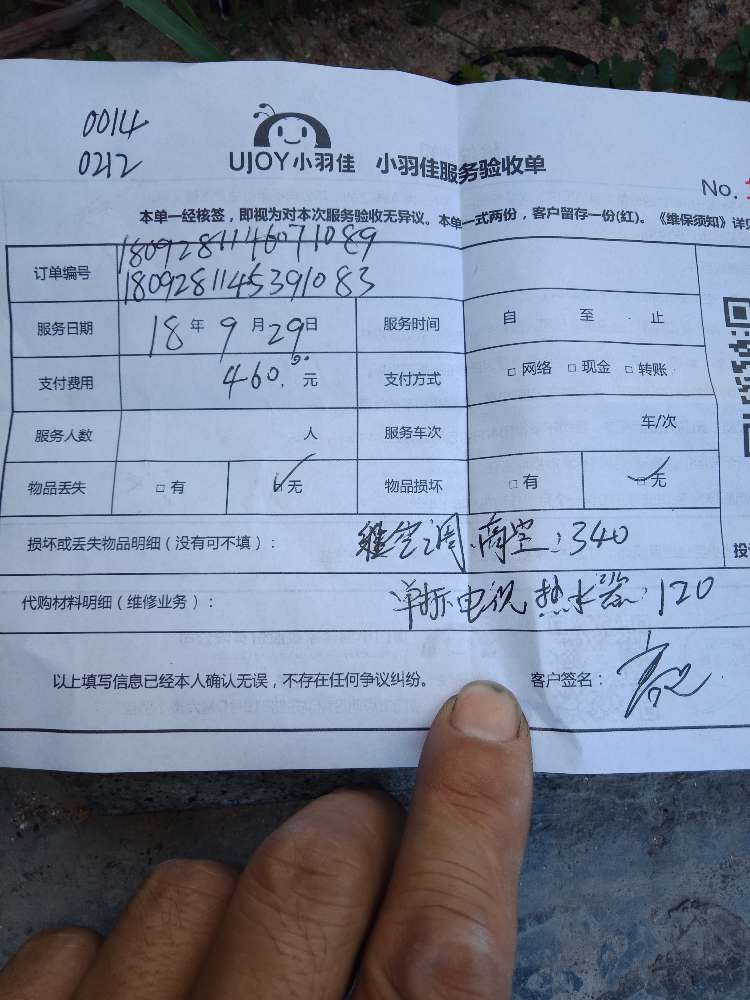 0014
0212
UJOY小羽佳 小羽佳服务验收单
No.
本单一经核签，即视为对本次服务验收无异议。本单一式两份，客户留存一份(红)。《维保须知》详见
订单编号 1809281146071089
1809281145391083
服务日期 18年9月29日 服务时间 自 至 止
支付费用 460.00元 支付方式 □网络 □现金 □转账
服务人数 人 服务车次 车/次
物品丢失 □有 ☑无 物品损坏 □有 ☑无
损坏或丢失物品明细（没有可不填）： 空调 高空：340
代购材料明细（维修业务）： 单拆电视 热水器：120
投
以上填写信息已经本人确认无误，不存在任何争议纠纷。 客户签名：